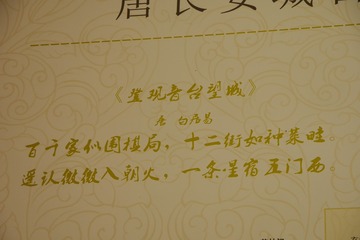 唐长安城
《登观音台望城》
唐 白居易
百千家似围棋局，十二街如种菜畦。
遥认微微入朝火，一条星宿五门西。